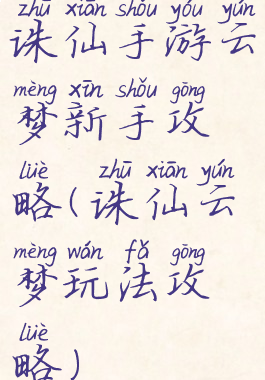 zhū xiān shǒu yóu yún
诛仙手游云
mèng xīn shǒu gōng
梦新手攻
lüè zhū xiān yún
略(诛仙云
mèng wán fǎ gōng
梦玩法攻
lüè
略)